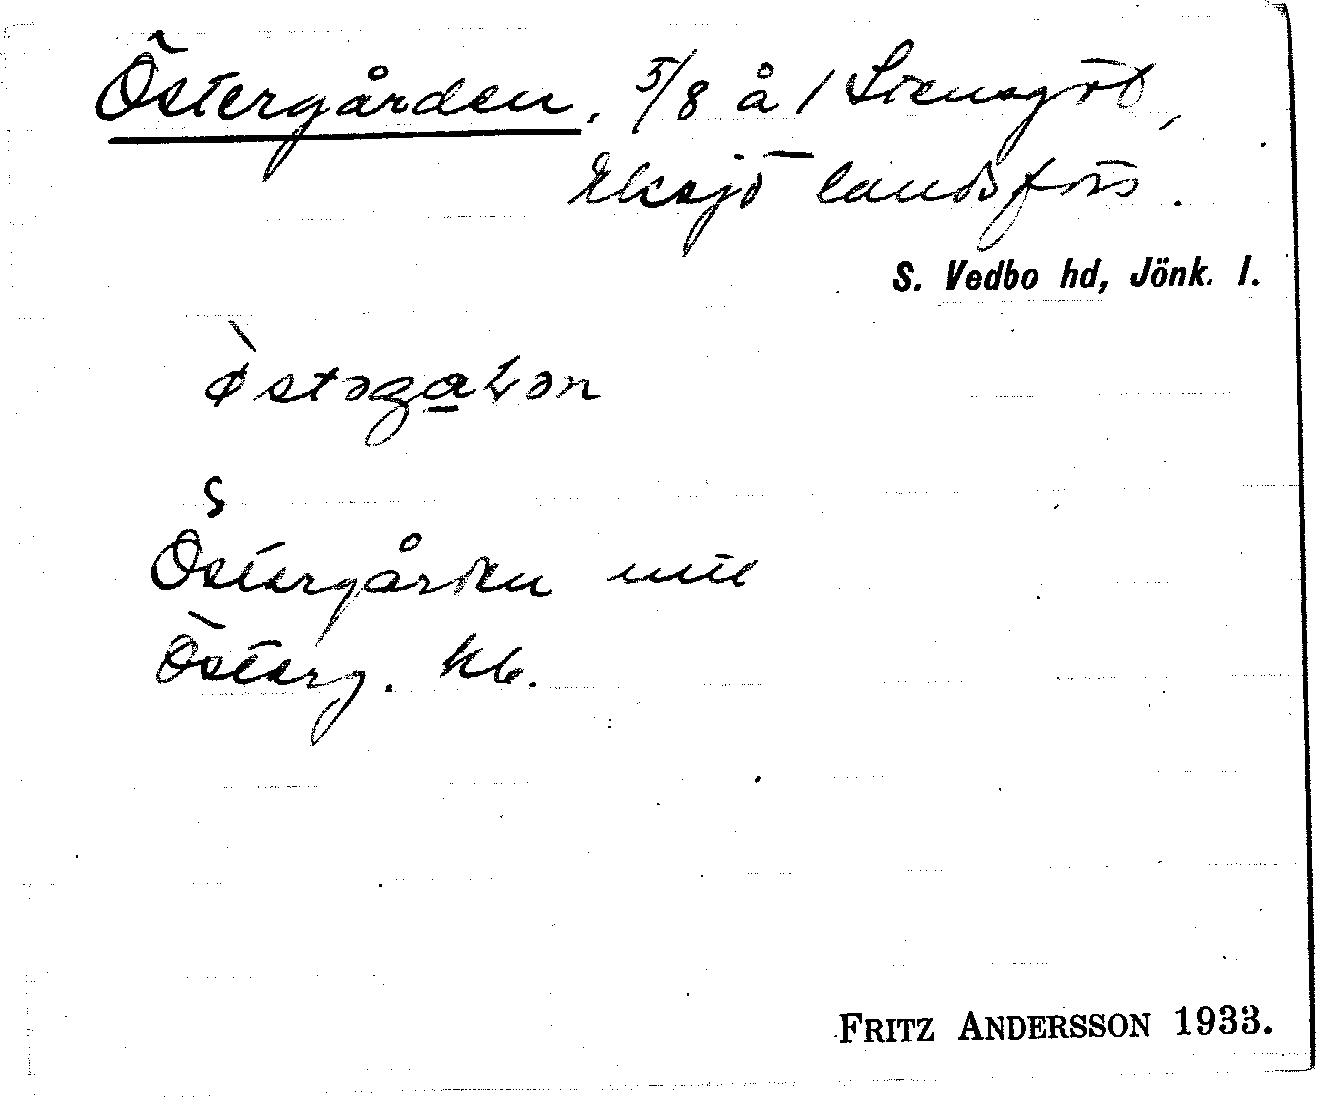 Östergården, 5/8 å 1 Stensgöl,
Eksjö landsförs.
S. Vedbo hd, Jönk. l.
Östergården
Österg. kb.
FRITZ ANDERSSON 1933.